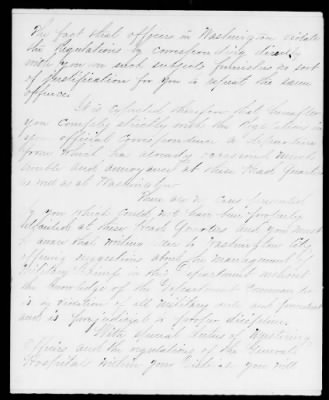 The fact that officers in Washington violate
the Regulations by corresponding directly
with you on such subjects furnishes no sort
of justification for you to repeat the same
offence.
It is expected therefore that hereafter
you comply strictly with the Regulations in
official correspondence a departure
from which has already occasioned much
trouble and annoyance at these Head Quarters
as well as at Washington.
There are no cases presented
by you which could not have been properly
attended at these Head Quarters and you must
be aware that writing to Washington City
offering suggestions about the management of
Military in this Department without
the knowledge of the Department Commander
is a violation of all Military and precedent
and is prejudicial to proper discipline.
With special duties of Mustering
Officer and the regulations of the General
Hospitals within your District you will